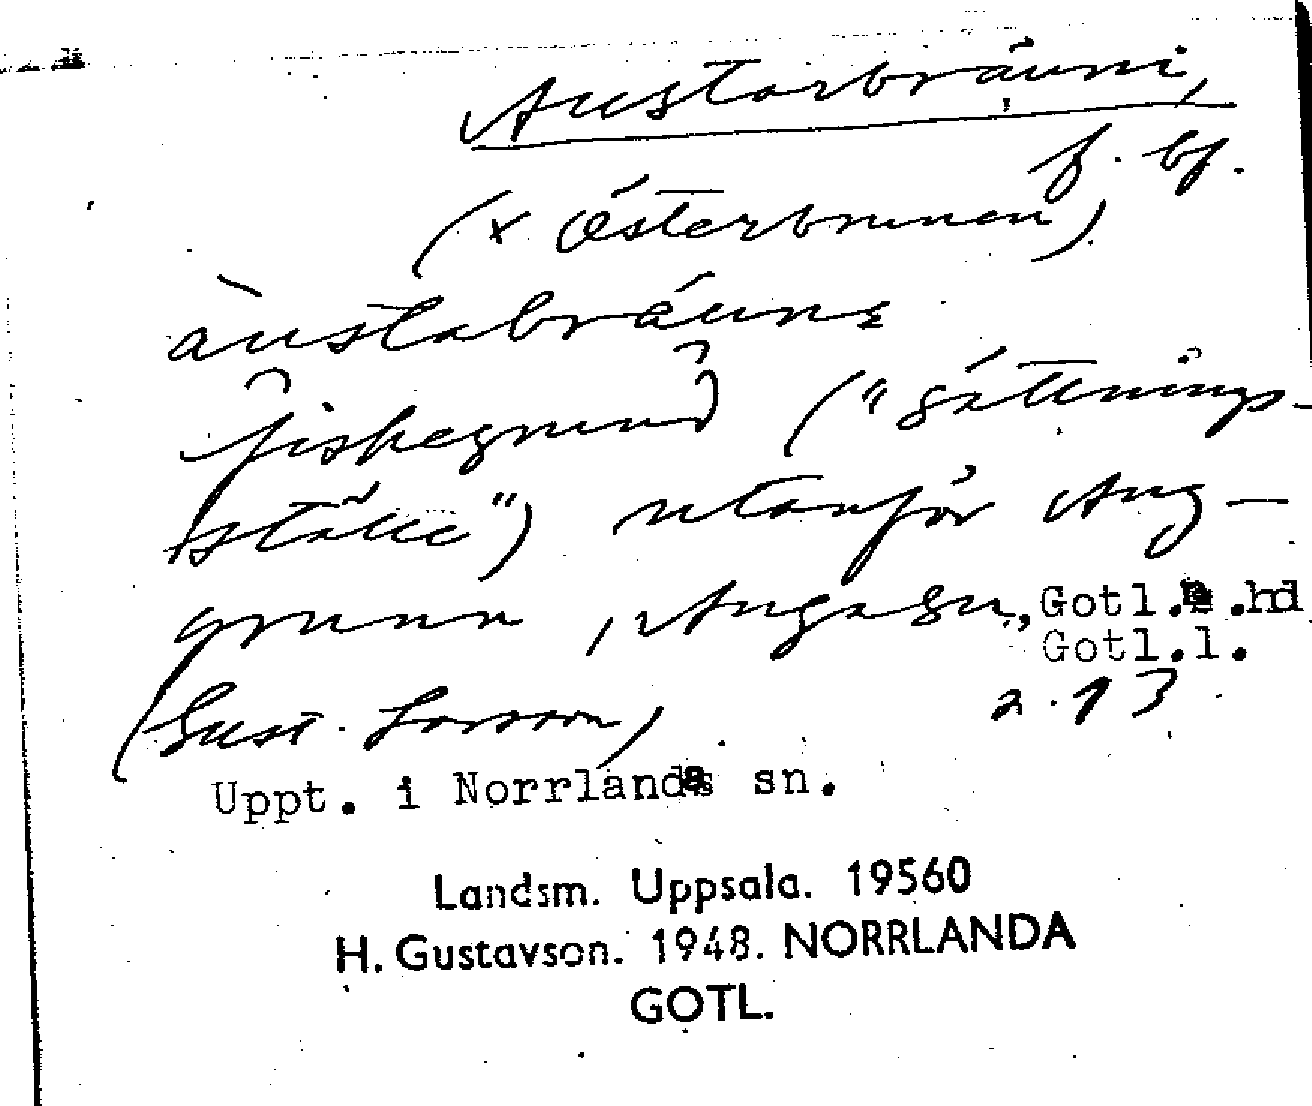 Austarbräuni,
f. bf.
(x Österbrunnen)
àustabráunɛ
fiskegrund ("sättnings-
ställe") utanför Ang-
grunn, Anga sn, Gotl. .hd
Gotl.l.
(Gust. Larsson) 2.13
Uppt. i Norrlanda sn.
Landsm. Uppsala. 19560
H. Gustavson. 1948. NORRLANDA
GOTL.